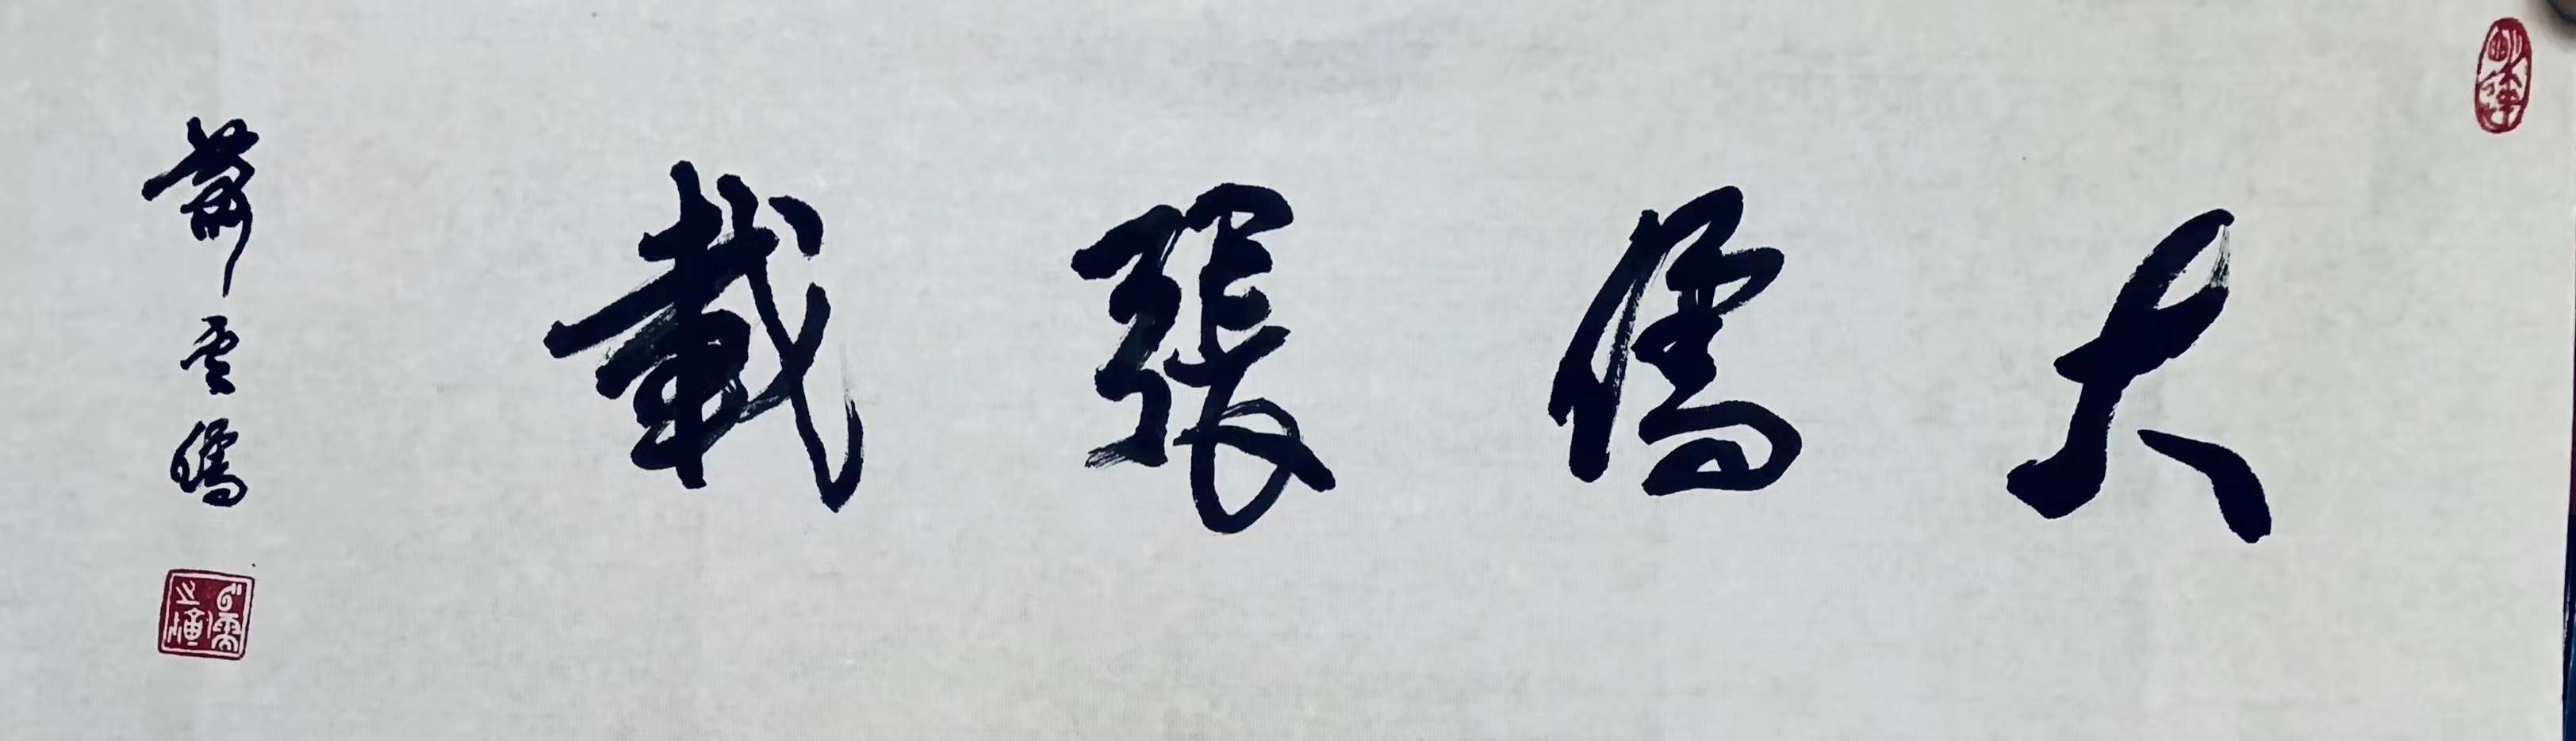 大儒張載
蕭雲儒